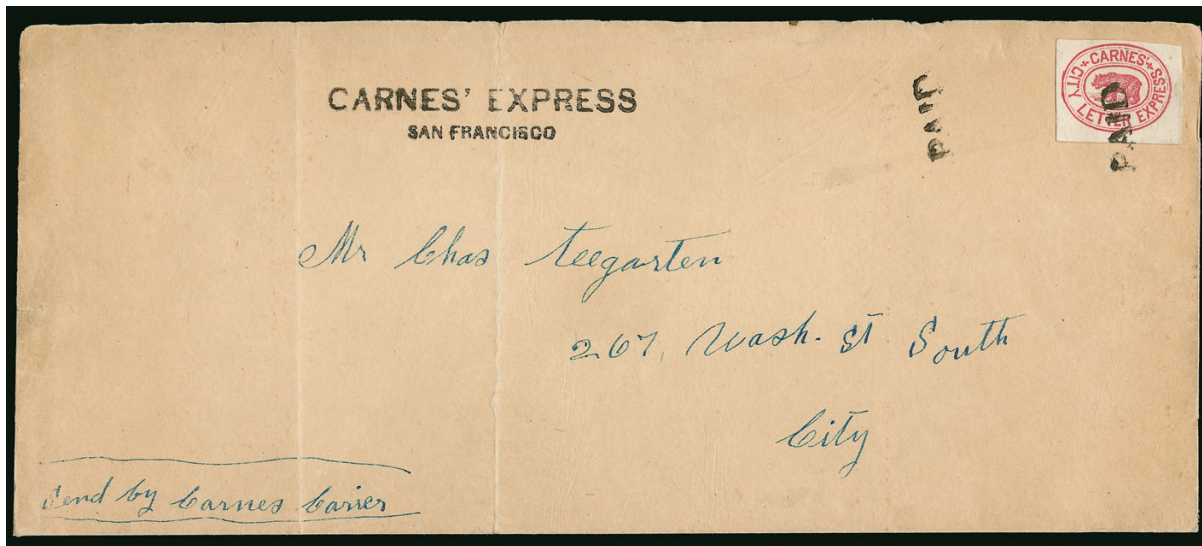 CARNES' EXPRESS
SAN FRANCISCO
PAID
CARNES'
CITY LETTER EXPRESS
PAID
Mr Chas Teegarten
267, Wash. St South
City
Send by Carnes Carier